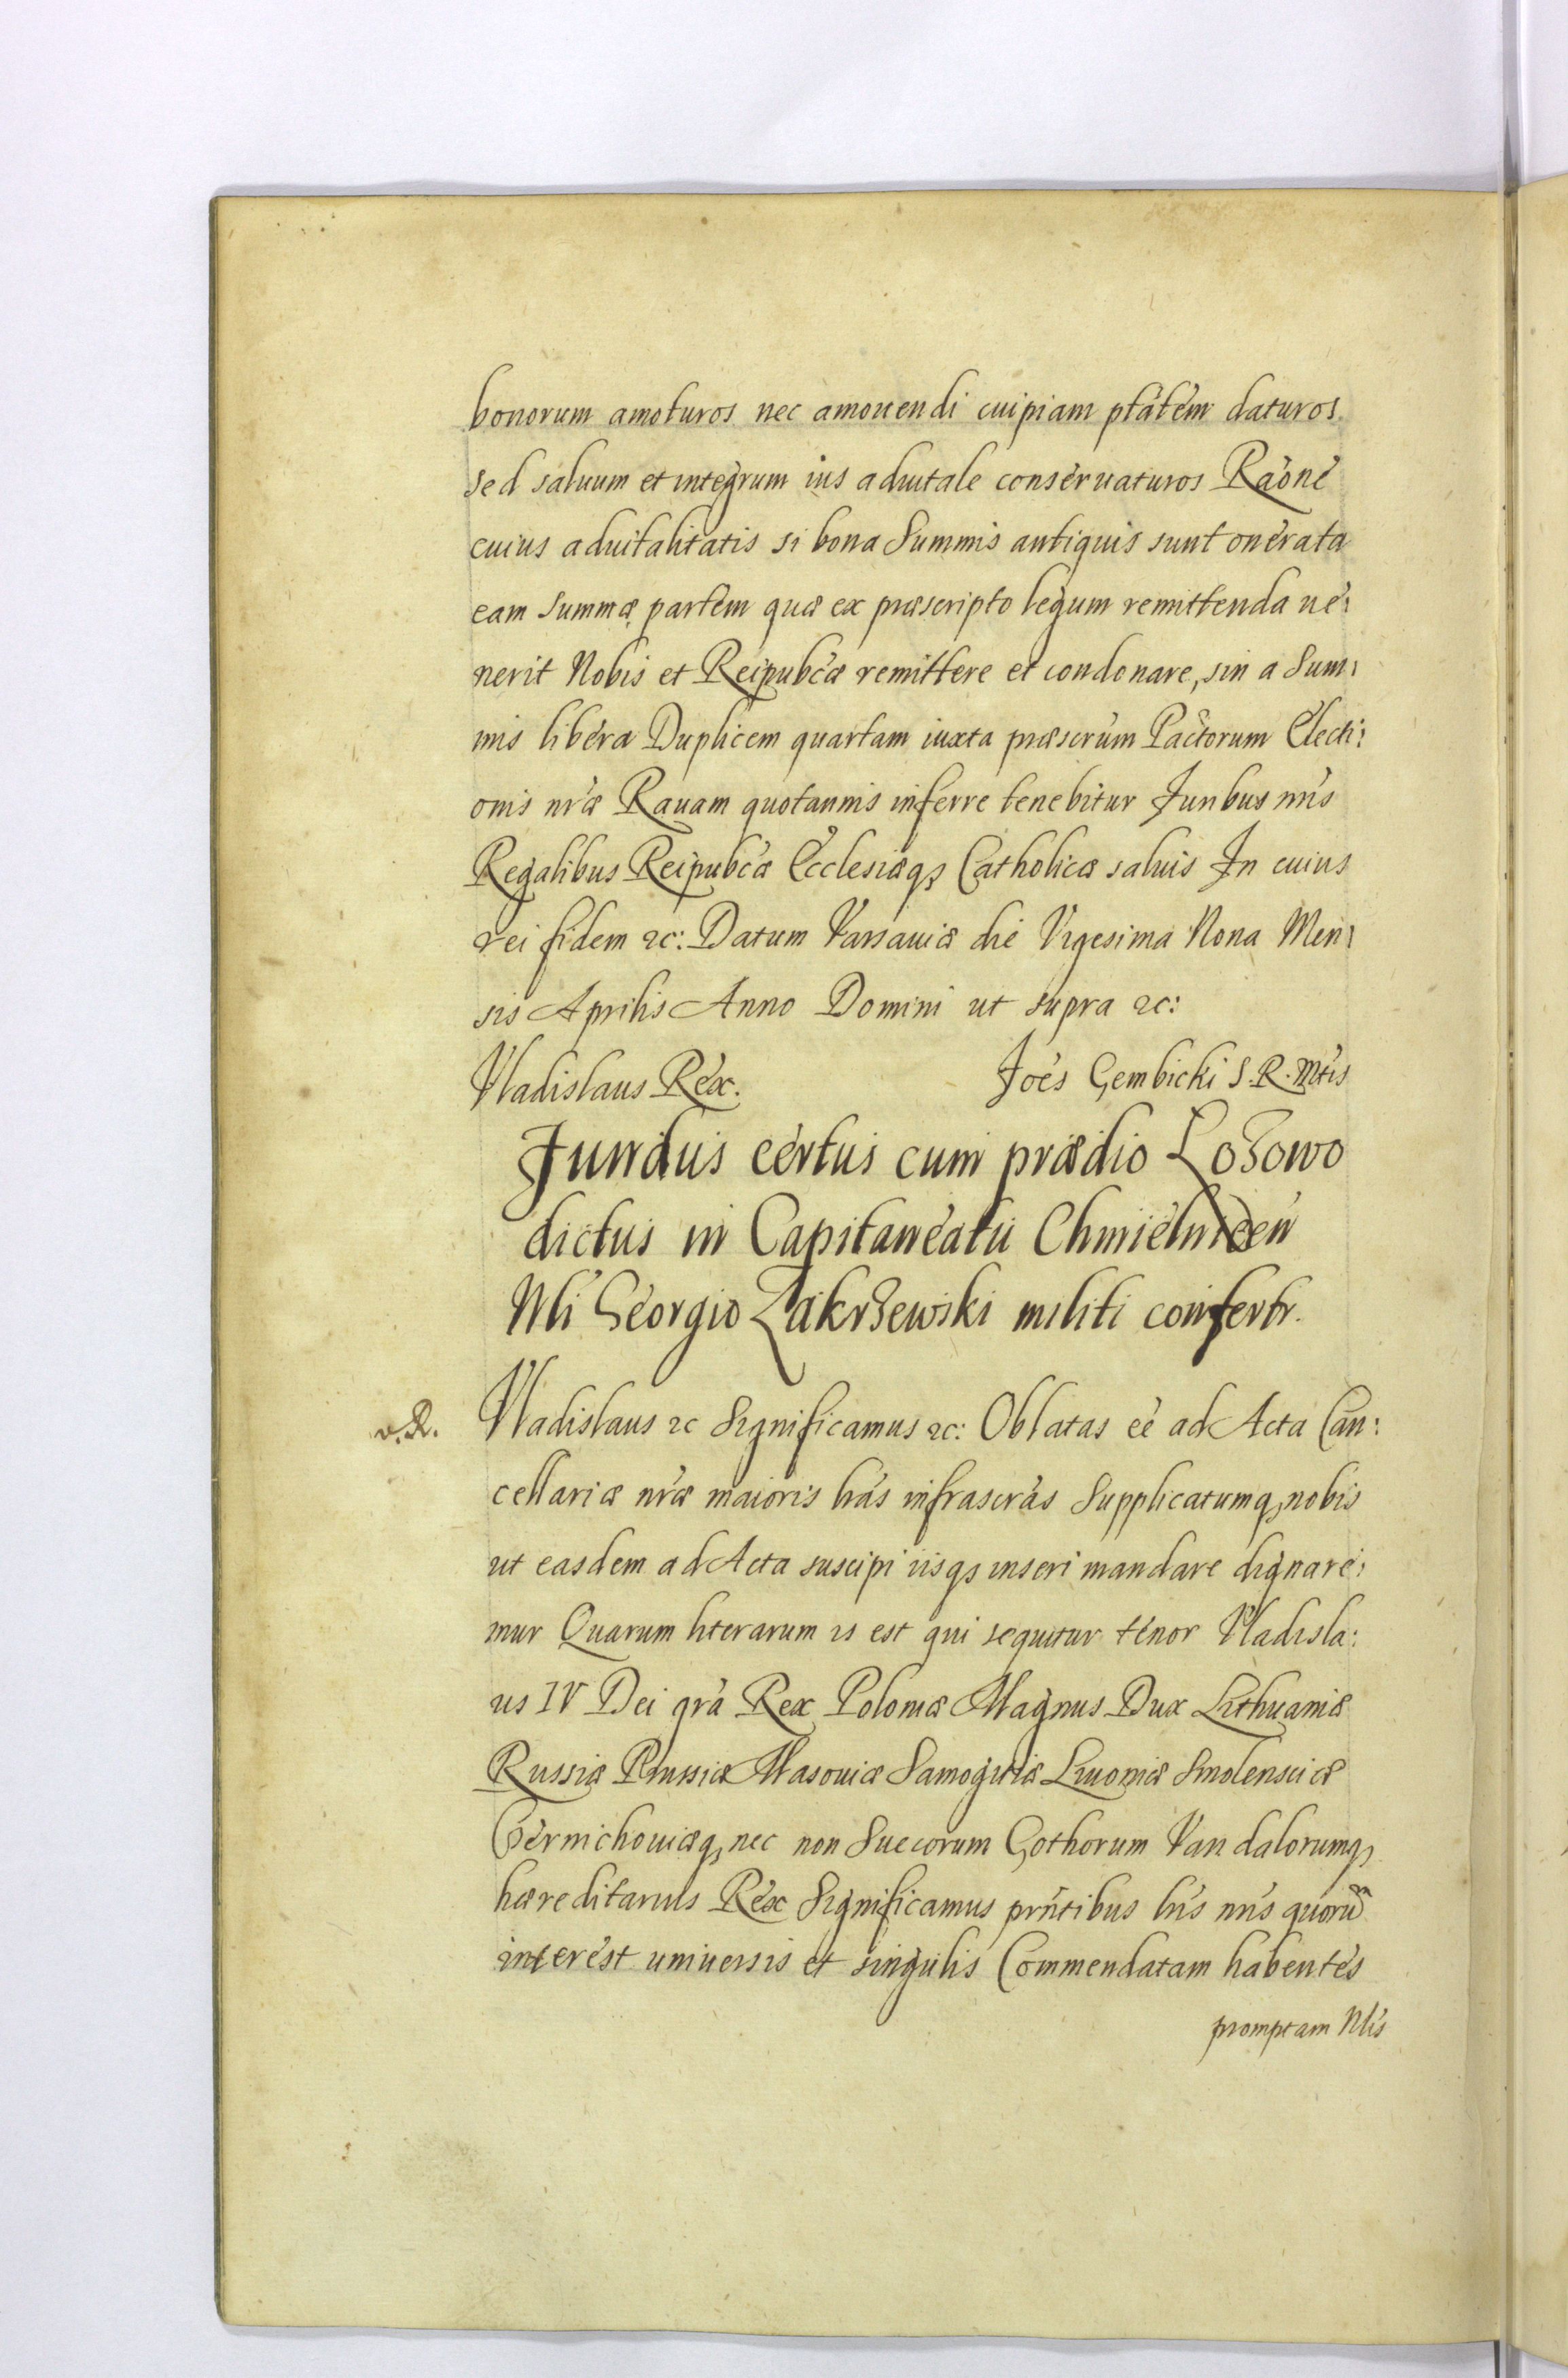 bonorum amoturos nec amouendi cuipiam ptãtem daturos
sed saluum et integrum ius aduitale conseruaturos Raõne
cuius aduitalitatis si bona Summis antiquis sunt onerata
eam summæ partem quæ ex præscripto legum remittenda ue:
nerit Nobis et Reipubcæ remittere et condonare, sin a Sum:
mis libera Duplicem quartam iuxta præscrum Pactorum Electi:
onis nræ Rauam quotannis inferre tenebitur Juribus nris
Regalibus Reipubcæ Ecclesiæq3 Catholicæ saluis In cuius
rei fidem &c: Datum Varsauiæ die Vigesima Nona Men:
sis Aprilis Anno Domini ut supra &c:
Vladislaus Rex. Joes Gembicki S. R. Mtis
Fundus certus cum prædio Lozowo
dictus in Capitaneatu Chmielnicen
Nli Georgio Zakrzewski militi confertr.
v. R. Vladislaus &c Significamus &c: Oblatas eé ad Acta Can:
cellariæ nræ maioris lras infrascras Supplicatumq3 nobis
ut easdem ad Acta suscipi iisq3 inseri mandare dignare:
mur Quarum literarum is est qui sequitur tenor Vladisla:
us IV Dei gra Rex Poloniæ Magnus Dux Lithuaniæ
Russiæ Prussiæ Masouiæ Samogitiæ Liuoniæ Smolensciæ
Czernichouiæq3 nec non Suecorum Gothorum Vandalorumq3
hæreditarius Rex Significamus prntibus lris nris quorũ
interest uniuersis et singulis Commendatam habentes
promptam Nlis